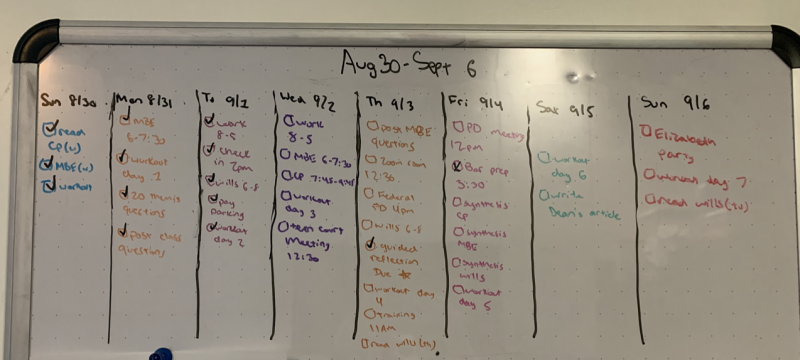 Aug 30 - Sept 6
Sun 8/30
read
CP(u)
MBE(u)
workout
Mon 8/31
MBE
6-7:30
workout
day 1
20 themis
questions
post class
questions
Tu 9/1
work
8-5
check
in 2pm
wills 6-8
pay
parking
workout
day 2
Wed 9/2
work
8-5
MBE 6-7:30
CP 7:45-9:45
workout
day 3
teen court
Meeting
12:30
Th 9/3
post MBE
questions
Zoom room
12:30
Federal
PD 4pm
wills 6-8
guided
reflection
Due
workout day
4
training
11AM
read wills
Fri 9/4
PD meeting
12pm
Bar prep
synthesis
CP
synthesis
MBE
synthesis
wills
workout
day 5
Sat 9/5
workout
day 6
write
Dean's article
Sun 9/6
Elizabeth
party
workout day 7
read wills